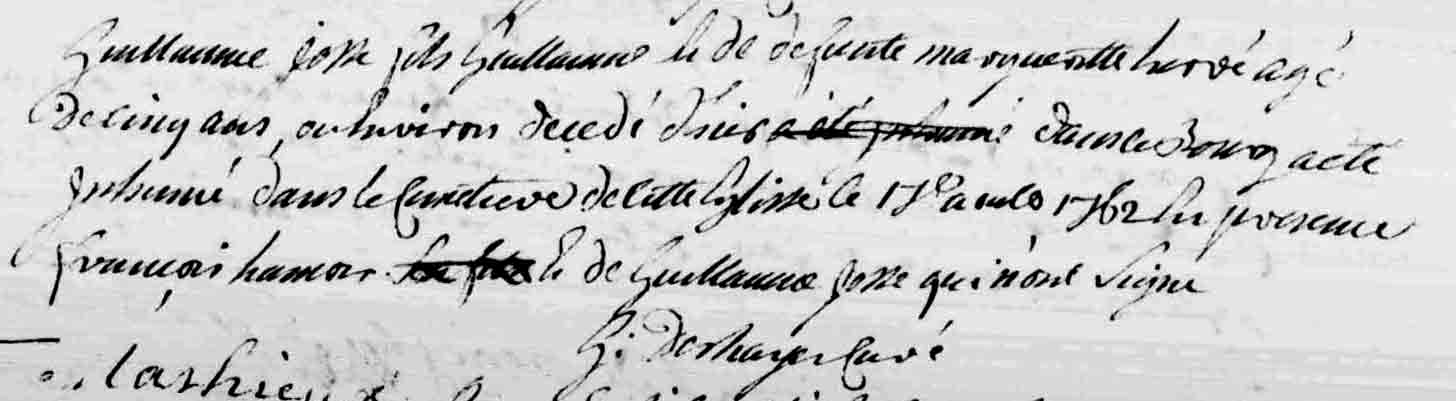 Guillaume Josse fils Guillaume & de defunte margueritte hervé agé
de cinq ans ou Environ decedé d'hier a été inhumé dans ce Bourg a eté
Inhumé dans le Cimetiere de cette Eglisse le 17e avril 1762 En presence
françois hamon & de Guillaume Josse qui n'ont Signé
G: Deshayes Curé